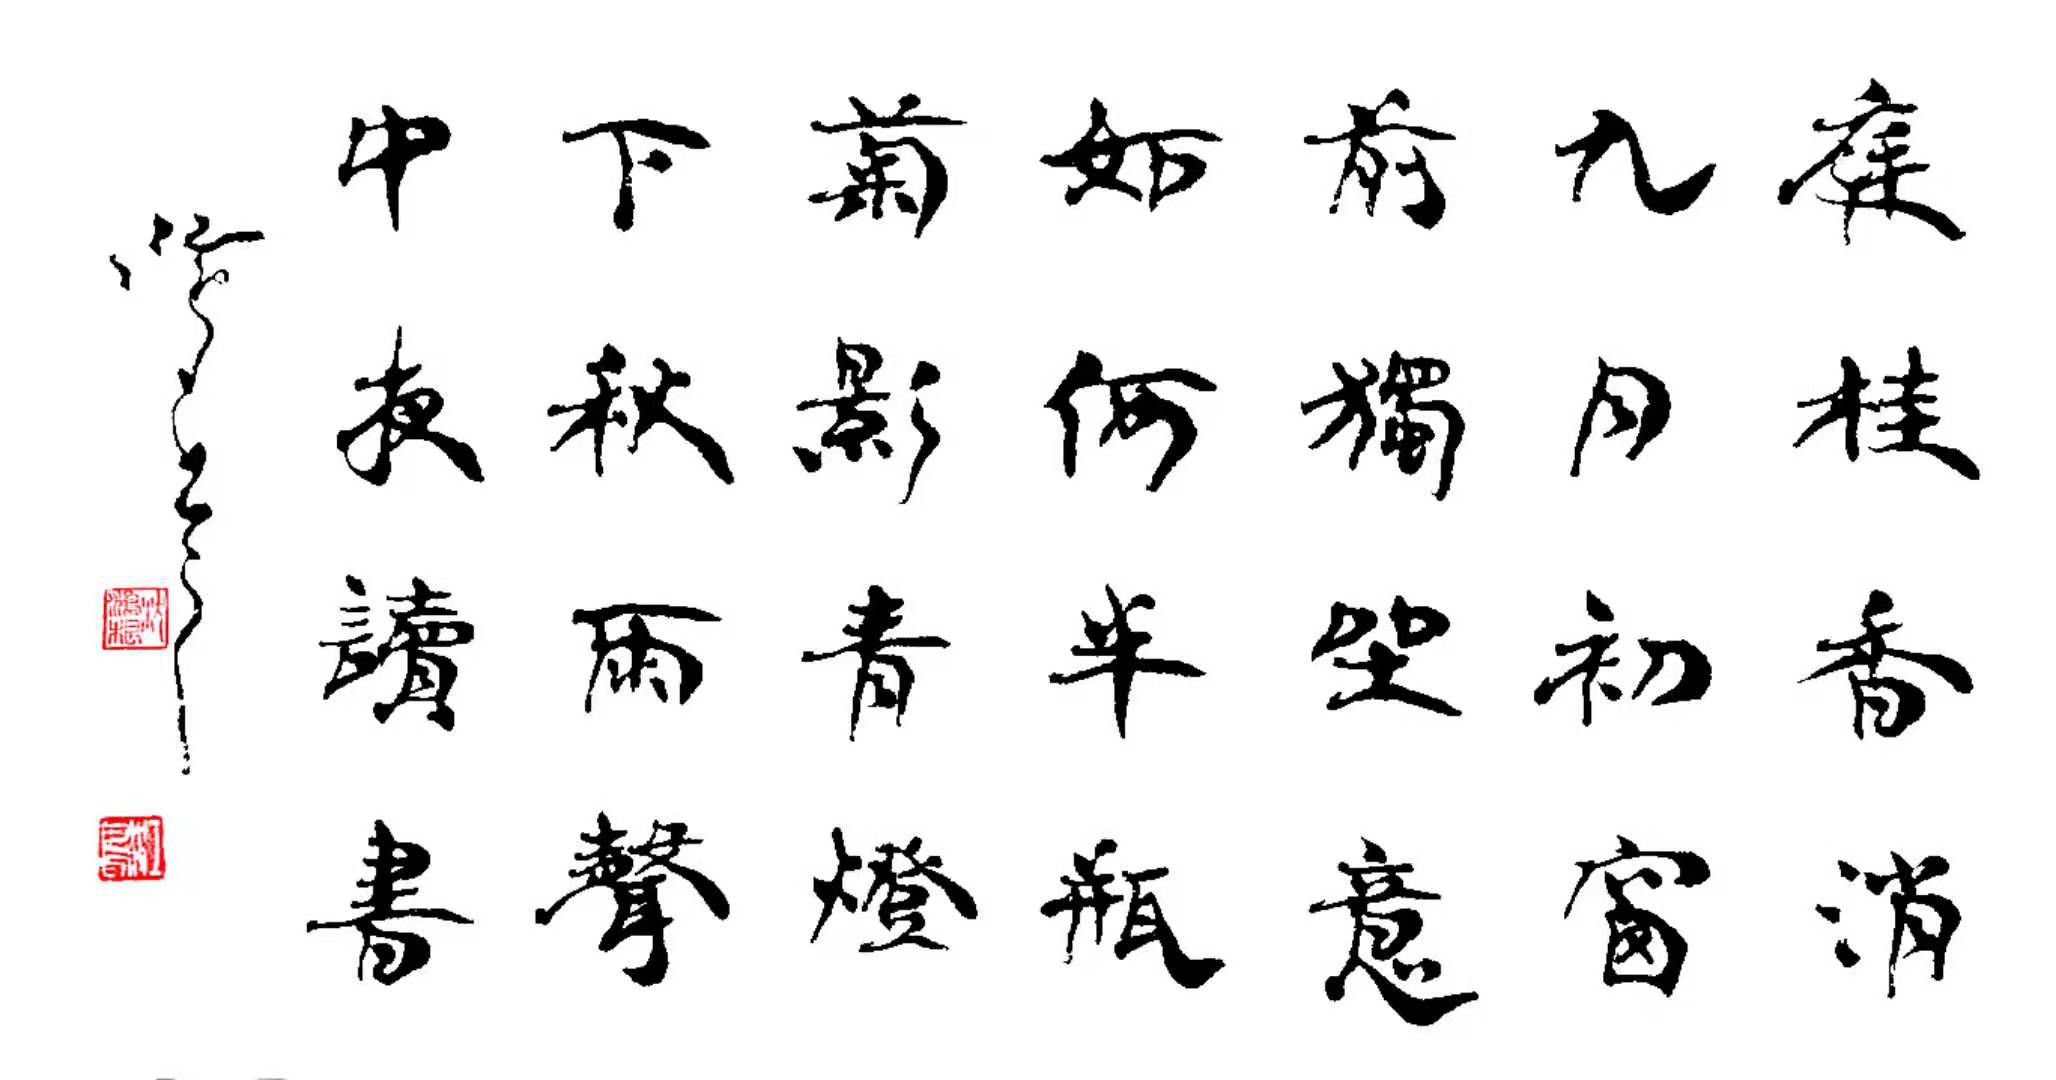 庭桂香消
九月初窗
前獨坐意
如何半瓶
菊影青燈
下秋雨聲
中夜讀書